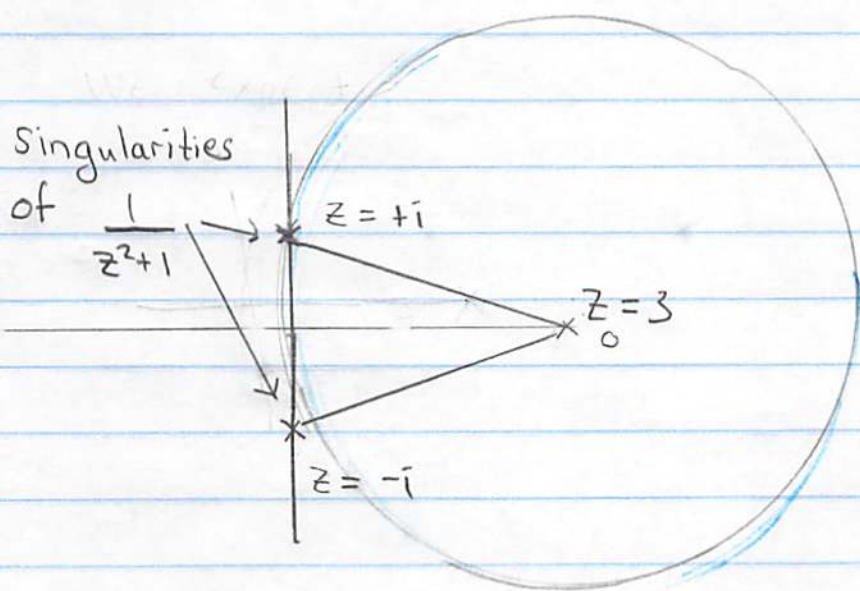 Singularities
of 1/z²+1
z = +i
z₀ = 3
z = -i